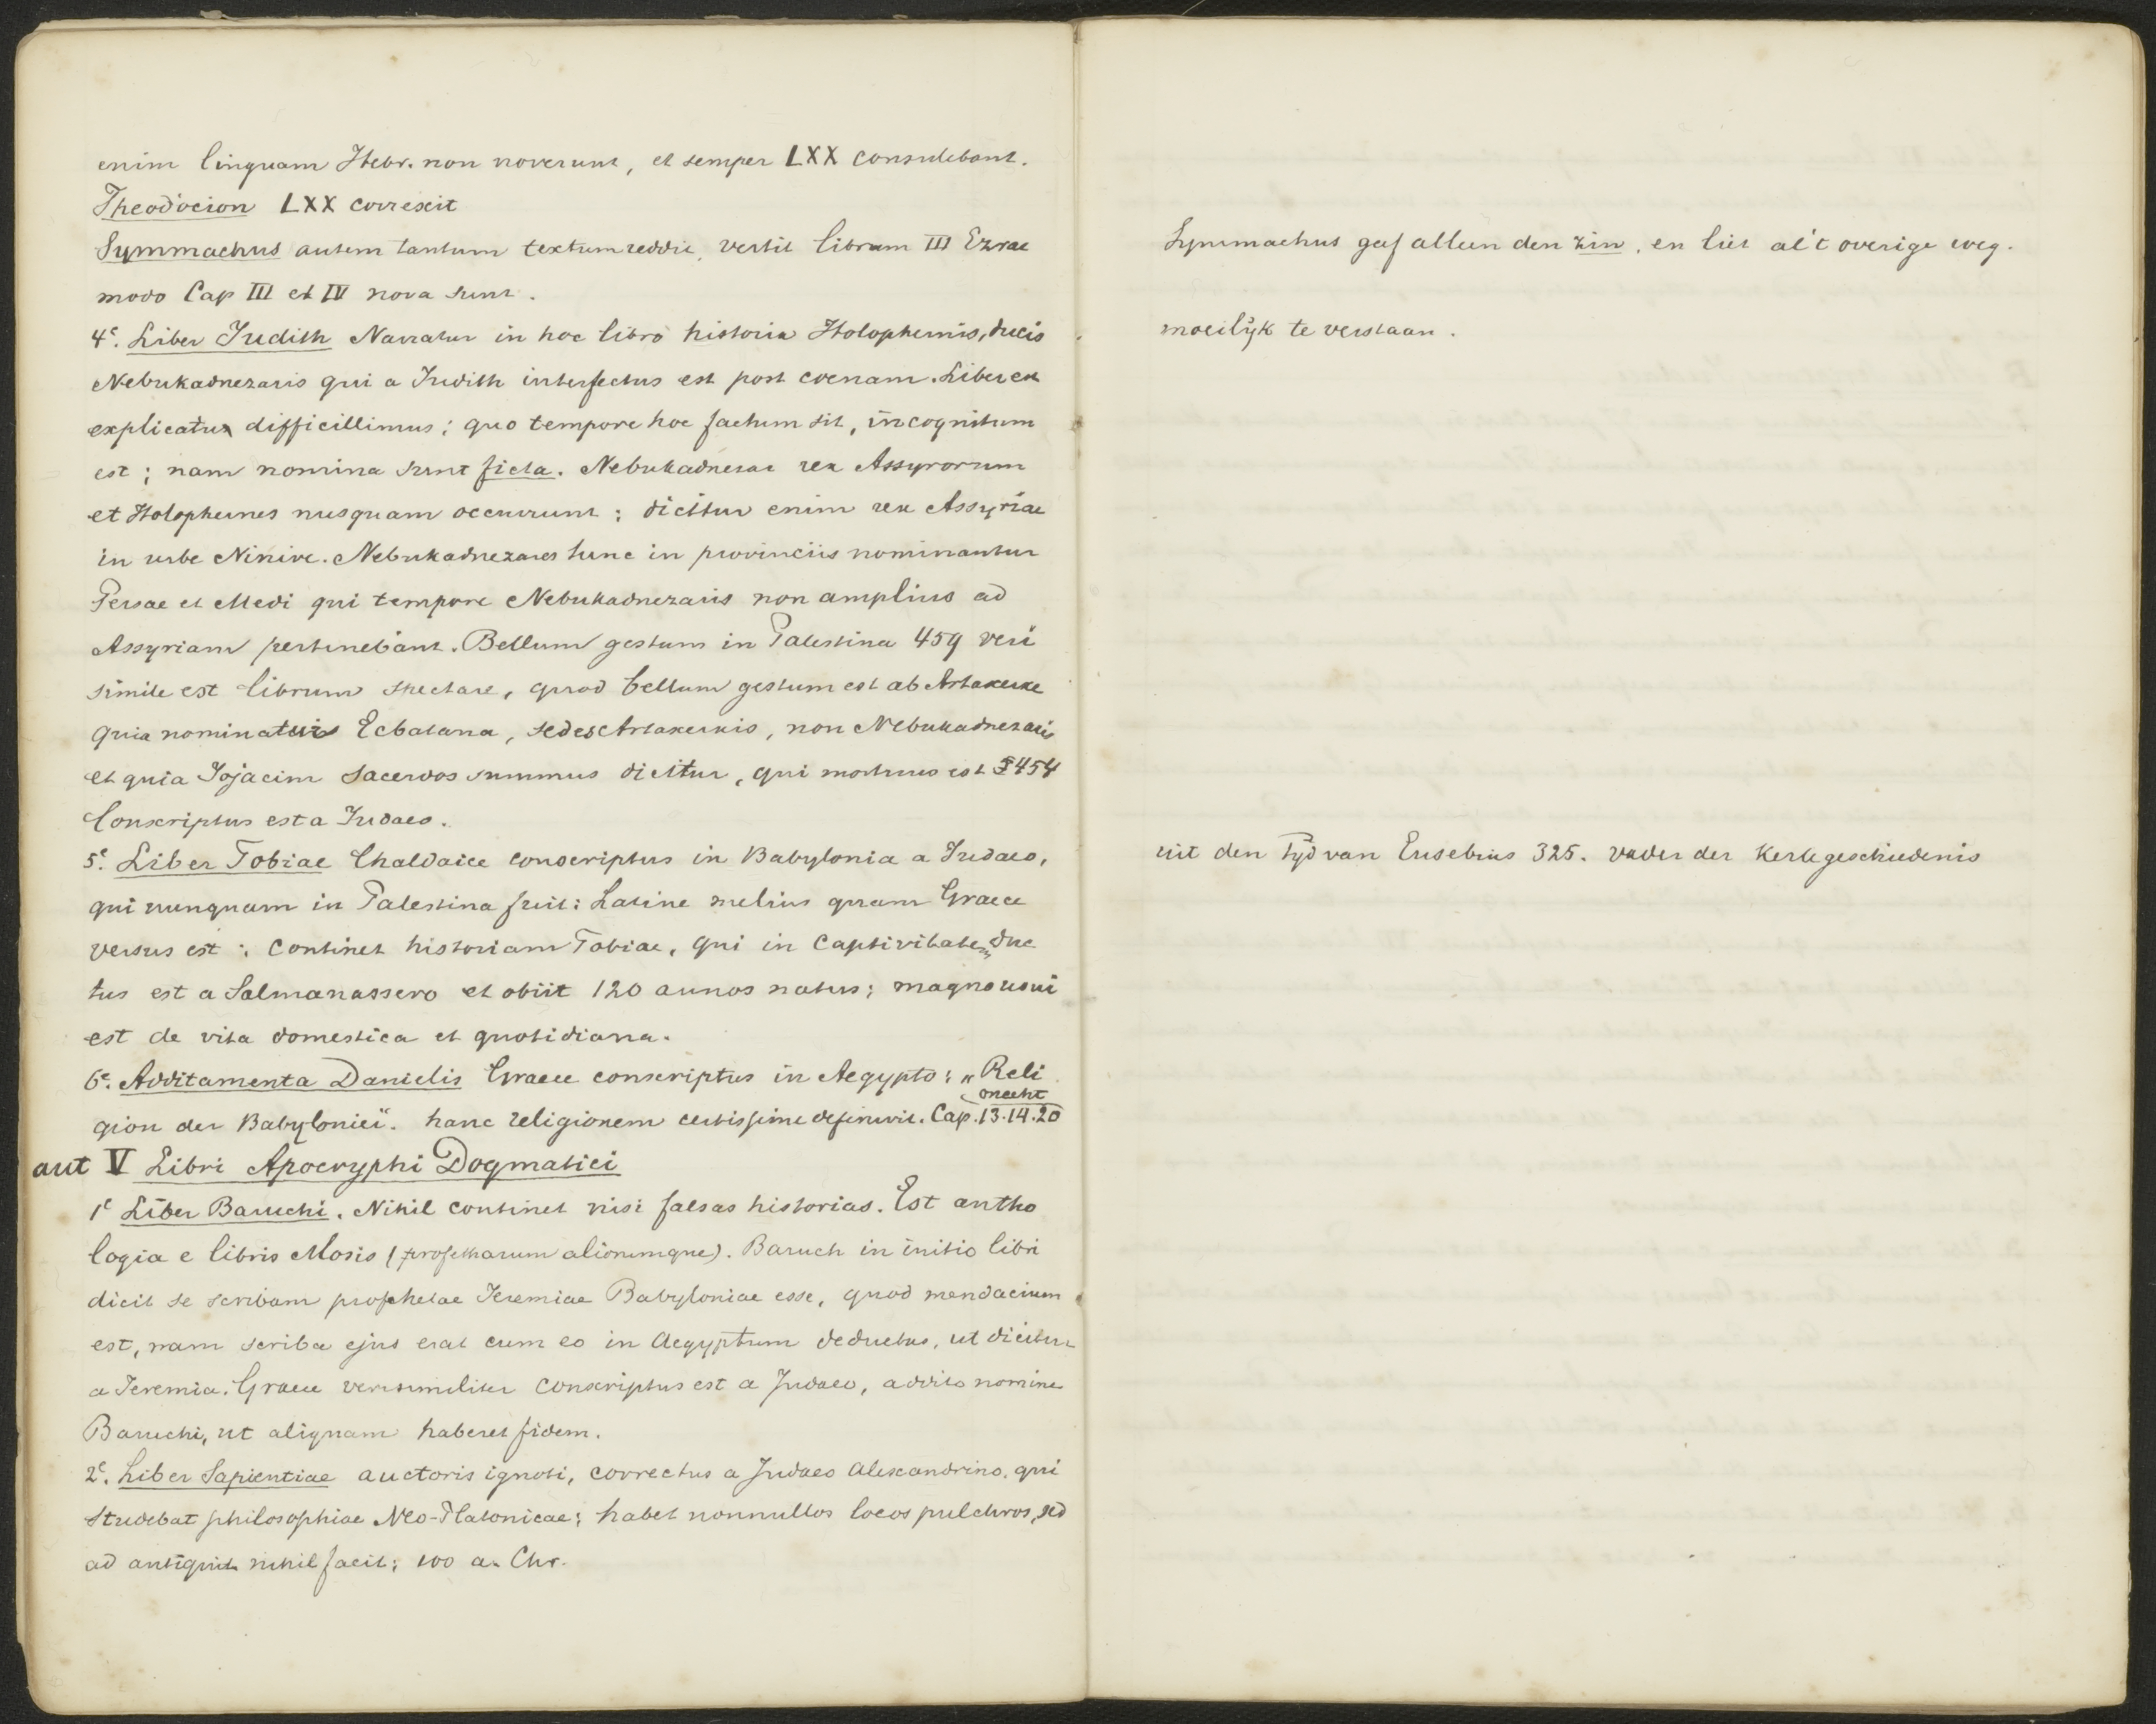 enim linguam Hebr. non noverunt, et semper LXX consulebant.
Theodocion LXX correxit
Symmachus autem tantum textum reddit, vertit librum III Ezrae
modo Cap III et IV nova sunt.
4e. Liber Judith Narratur in hoc libro historia Holophernis, ducis
Nebukadnezaris qui a Judith interfectus est post coenam. Liber est
explicatu difficillimus; quo tempore hoc factum sit, incognitum
est; nam nomina sunt ficta. Nebukadnezar rex Assyrorum
et Holophernes nusquam occurrunt; dicitur enim rex Assyriae
in urbe Ninive. Nebukadnezares tunc in provinciis nominantur
Persae et Medi qui tempore Nebukadnezaris non amplius ad
Assyriam pertinebant. Bellum gestum in Palestina 459 veri
simile est librum spectare, quod bellum gestum est ab Artaxerxe
quia nominatur Ecbatana, sedes Artaxerxis, non Nebukadnezaris
et quia Jojacim sacerdos summus dicitur, qui mortuus est 454
Conscriptus est a Judaeo.
5e. Liber Tobiae Chaldaice conscriptus in Babylonia a Judaeo,
qui nunquam in Palestina fuit: Latine melius quam Graece
versus est; continet historiam Tobiae, qui in captivitatem duc
tus est a Salmanassero et obiit 120 annos natus; magno usui
est de vita domestica et quotidiana.
6e. Additamenta Danielis Graece conscriptus in Aegypto; "Reli
onecht
gion der Babylonier". hanc religionem certissime definivit. Cap. 13.14.20
aut V Libri Apocryphi Dogmatici
1e Liber Baruchi. Nihil continet nisi falsas historias. Est antho
logia e libris Mosis (profetarum aliorumque). Baruch in initio libri
dicit se scribam prophetae Jeremiae Babyloniae esse, quod mendacium
est, nam scriba ejus erat cum eo in Aegyptum deductus, ut dicitur
a Jeremia. Graece verisimiliter conscriptus est a Judaeo, addito nomine
Baruchi, ut aliquam haberet fidem.
2e. Liber Sapientiae auctoris ignoti, correctus a Judaeo Alexandrino, qui
studebat philosophiae Neo-Platonicae; habet nonnullos locos pulchros, sed
ad antiquit nihil facit; 100 a. Chr.
Symmachus gaf alleen den zin, en liet al 't overige weg.
moeilijk te verstaan.
uit den tijd van Eusebius 325. vader der Kerkgeschiedenis